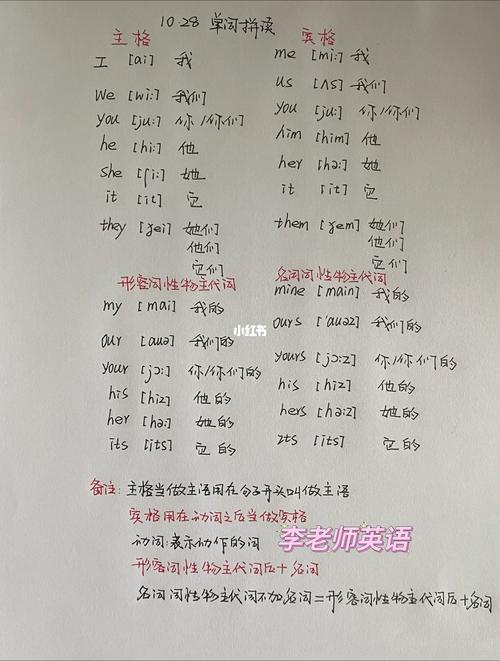 10.28 单词拼读
主格 宾格
I [ai] 我 me [mi:] 我
us [ʌs] 我们
we [wi:] 我们
you [ju:] 你/你们 you [ju:] 你/你们
he [hi:] 他 him [him] 他
she [ʃi:] 她 her [hə:] 她
it [it] 它 it [it] 它
they [ɣei] 她们 them [ɣem] 她们
他们 他们
它们 它们
形容词性物主代词 名词词性物主代词
my [mai] 我的 mine [main] 我的
our [auə] 我们的 ours ['auəz] 我们的
your [jɔ:] 你/你们的 yours [jɔ:z] 你/你们的
his [hiz] 他的 his [hiz] 他的
her [hə:] 她的 hers [hə:z] 她的
its [its] 它的 its [its] 它的
小红书
备注: 主格当做主语用在句子开头叫做主语
宾格用在动词之后当做宾格
动词:表示动作的词
李老师英语
形容词性物主代词后+名词
名词词性物主代词不加名词=形容词性物主代词后+名词